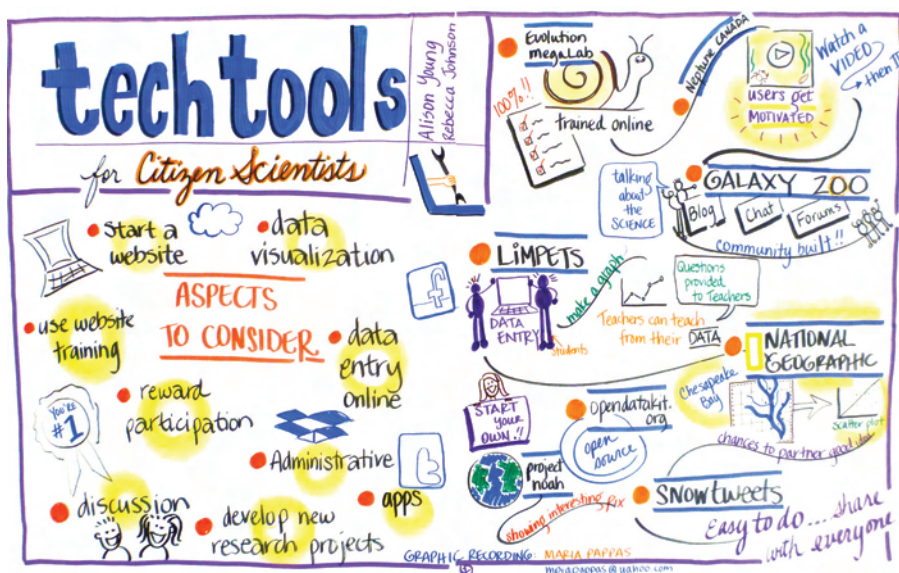 tech tools
for Citizen Scientists
Alison Young
Rebecca Johnson
Start a
website
data
visualization
ASPECTS
TO CONSIDER
use website
training
data
entry
online
YOU'RE
#1
reward
participation
Administrative
apps
discussion
develop new
research projects
Evolution
megaLab
100%!!
trained online
Neptune CANADA
users get
MOTIVATED
Watch a
VIDEO
then
talking
about
the
SCIENCE
GALAXY ZOO
Blog
Chat
Forums
community built!!
LiMPETS
DATA
ENTRY
students
make a graph
Questions
provided
to Teachers
Teachers can teach
from their DATA
NATIONAL
GEOGRAPHIC
Chesapeake
Bay
Scatter plot
chances to partner
START
YOUR
OWN!!
opendatakit.
org
open
source
project
noah
showing interesting pix
SNOWTWEETS
Easy to do... share
with everyone
GRAPHIC RECORDING: MARIA PAPPAS
mariapappas@yahoo.com